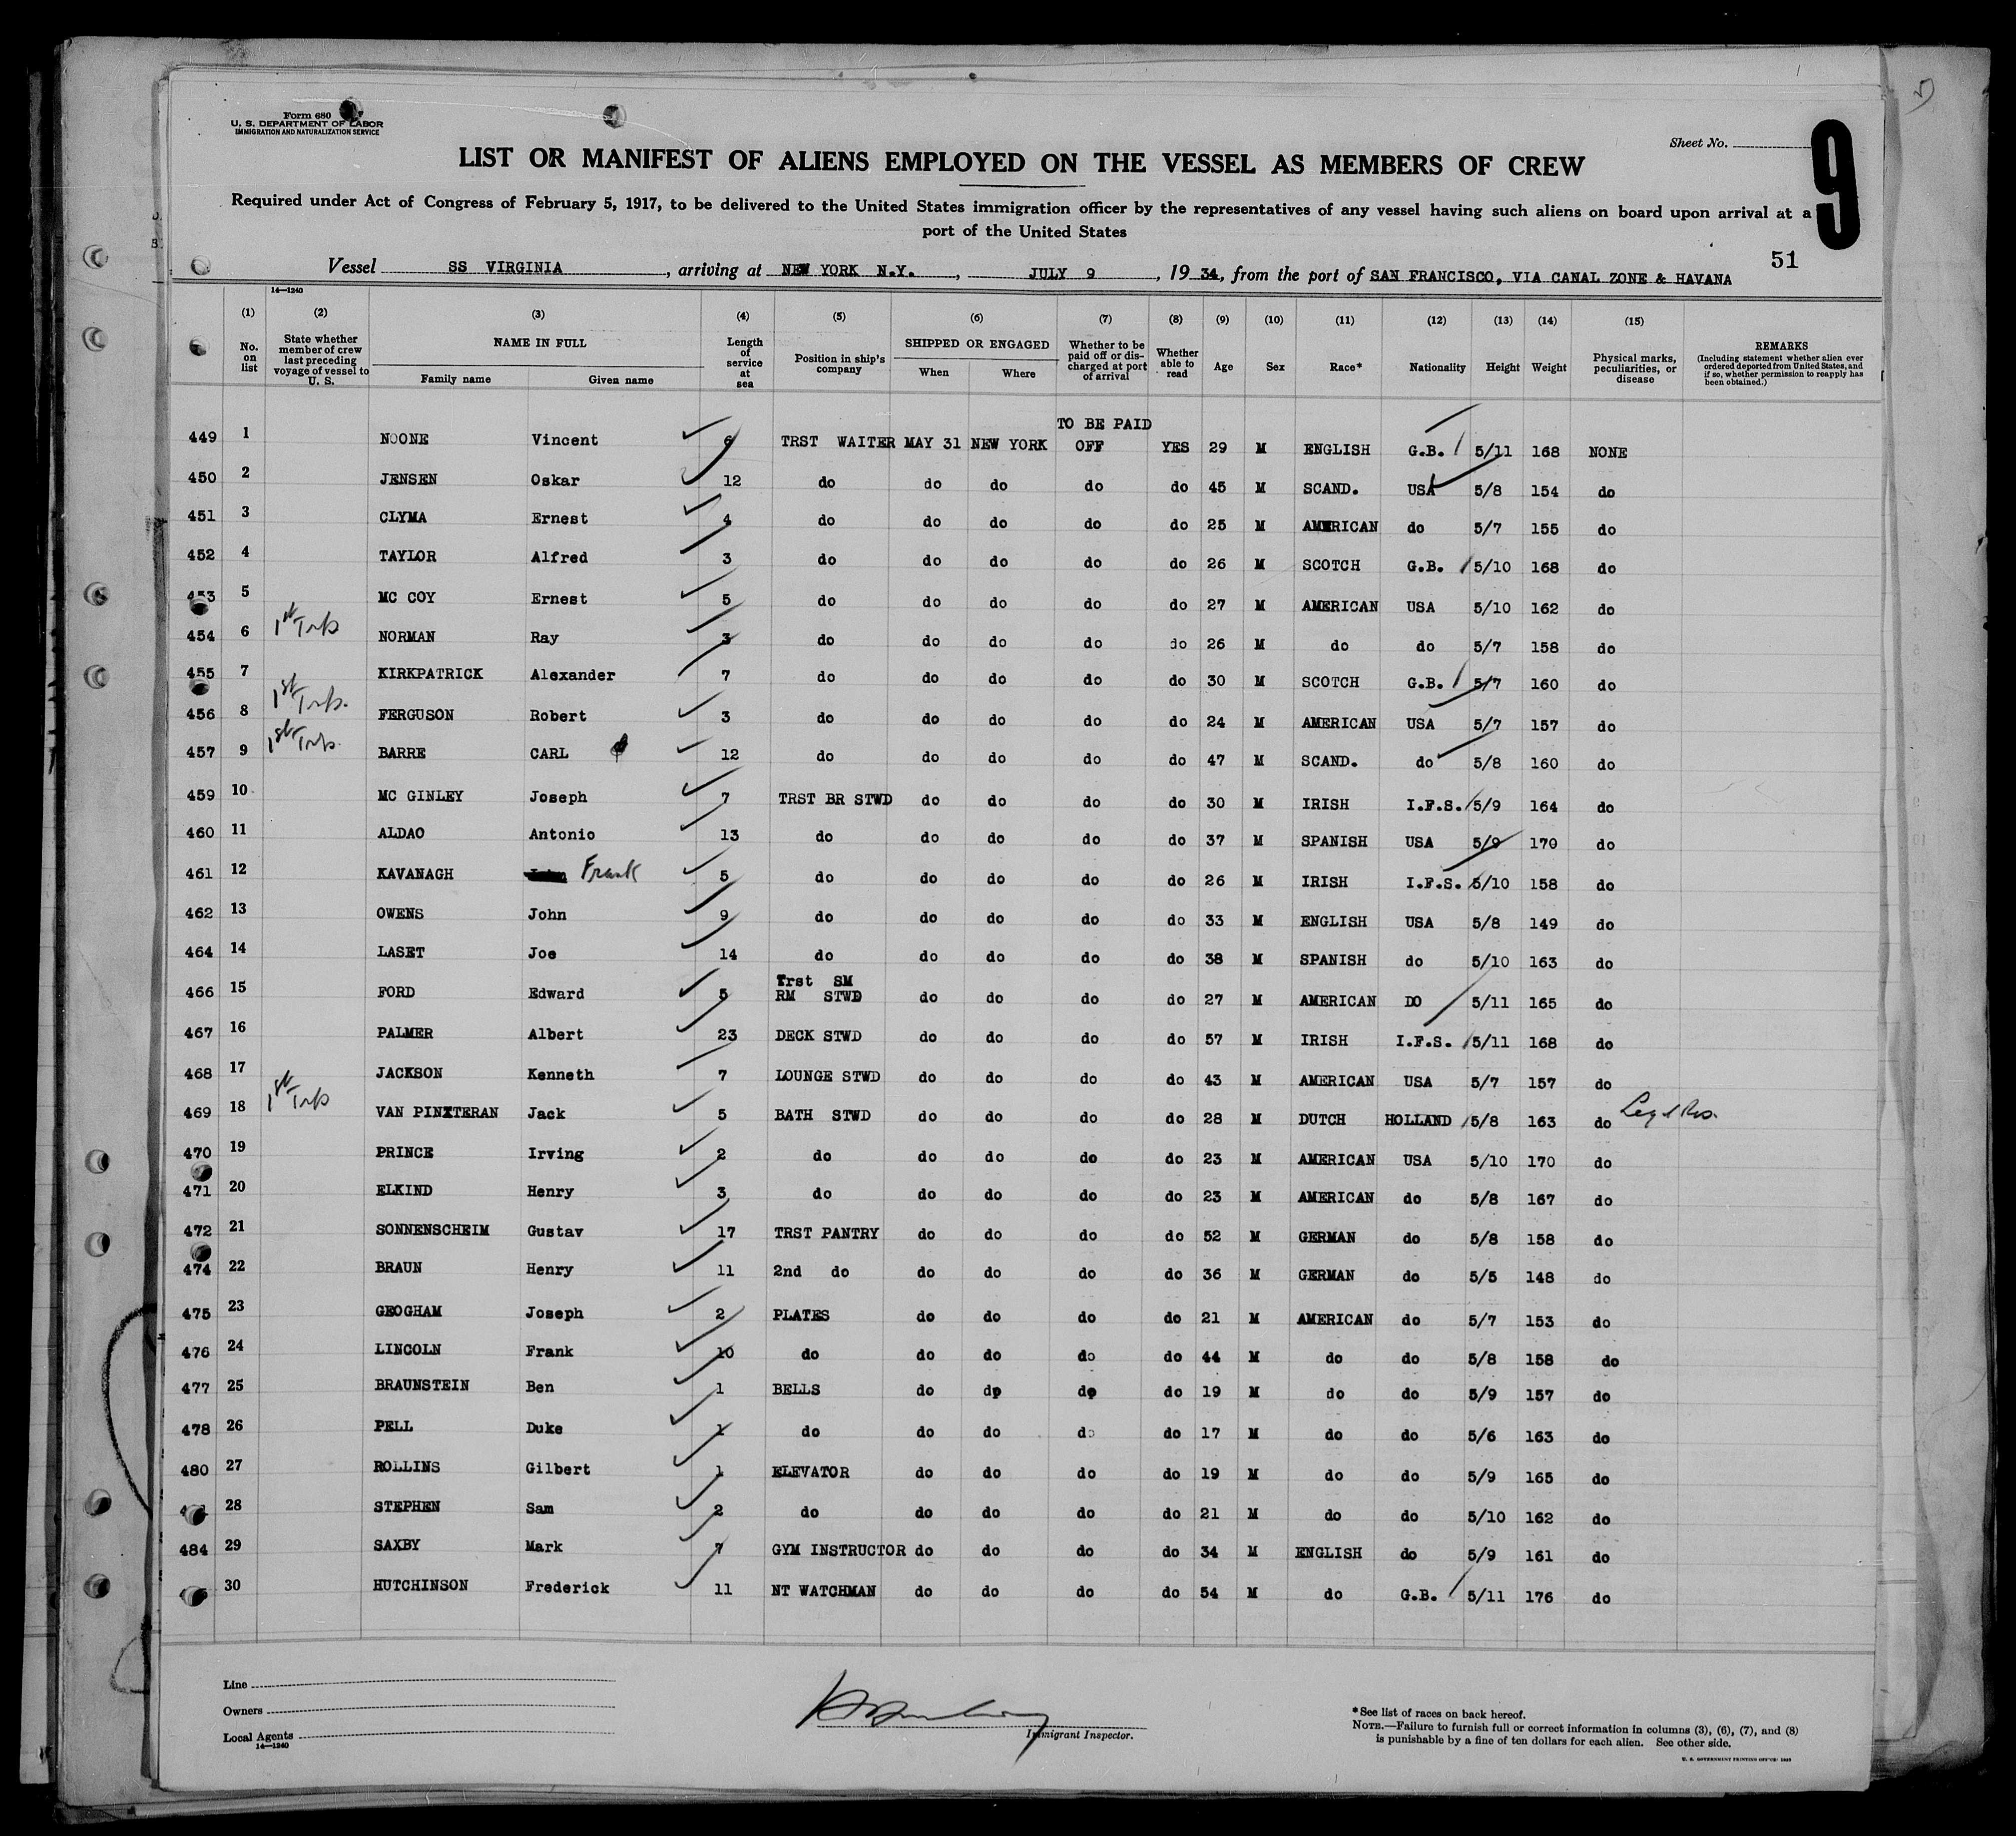 Form 680
U. S. DEPARTMENT OF LABOR
IMMIGRATION AND NATURALIZATION SERVICE
Sheet No.
9
LIST OR MANIFEST OF ALIENS EMPLOYED ON THE VESSEL AS MEMBERS OF CREW
Required under Act of Congress of February 5, 1917, to be delivered to the United States immigration officer by the representatives of any vessel having such aliens on board upon arrival at a
port of the United States
51
Vessel SS VIRGINIA, arriving at NEW YORK N.Y., JULY 9, 1934, from the port of SAN FRANCISCO, VIA CANAL ZONE & HAVANA
14—1240
(1) (2) (3) (4) (5) (6) (7) (8) (9) (10) (11) (12) (13) (14) (15)
No. on list
State whether member of crew last preceding voyage of vessel to U. S.
NAME IN FULL
Family name Given name
Length of service at sea
Position in ship's company
SHIPPED OR ENGAGED
When Where
Whether to be paid off or discharged at port of arrival
Whether able to read
Age Sex Race* Nationality Height Weight
Physical marks, peculiarities, or disease
REMARKS
(Including statement whether alien ever ordered deported from United States, and if so, whether permission to reapply has been obtained.)
TO BE PAID
449 1 NOONE Vincent 6 TRST WAITER MAY 31 NEW YORK OFF YES 29 M ENGLISH G.B. 5/11 168 NONE
450 2 JENSEN Oskar 12 do do do do do 45 M SCAND. USA 5/8 154 do
451 3 CLYMA Ernest 4 do do do do do 25 M AMERICAN do 5/7 155 do
452 4 TAYLOR Alfred 3 do do do do do 26 M SCOTCH G.B. 5/10 168 do
453 5 MC COY Ernest 5 do do do do do 27 M AMERICAN USA 5/10 162 do
454 6 1st Trip NORMAN Ray 3 do do do do do 26 M do do 5/7 158 do
455 7 KIRKPATRICK Alexander 7 do do do do do 30 M SCOTCH G.B. 5/7 160 do
456 8 1st Trip. FERGUSON Robert 3 do do do do do 24 M AMERICAN USA 5/7 157 do
457 9 1st Trip. BARRE CARL 12 do do do do do 47 M SCAND. do 5/8 160 do
459 10 MC GINLEY Joseph 7 TRST BR STWD do do do do 30 M IRISH I.F.S. 5/9 164 do
460 11 ALDAO Antonio 13 do do do do do 37 M SPANISH USA 5/9 170 do
461 12 KAVANAGH Frank 5 do do do do do 26 M IRISH I.F.S. 5/10 158 do
462 13 OWENS John 9 do do do do do 33 M ENGLISH USA 5/8 149 do
464 14 LASET Joe 14 do do do do do 38 M SPANISH do 5/10 163 do
Trst SM
466 15 FORD Edward 5 RM STWD do do do do 27 M AMERICAN DO 5/11 165 do
467 16 PALMER Albert 23 DECK STWD do do do do 57 M IRISH I.F.S. 5/11 168 do
468 17 JACKSON Kenneth 7 LOUNGE STWD do do do do 43 M AMERICAN USA 5/7 157 do
469 18 1st Trip VAN PINXTERAN Jack 5 BATH STWD do do do do 28 M DUTCH HOLLAND 5/8 163 do Legal Res.
470 19 PRINCE Irving 2 do do do do do 23 M AMERICAN USA 5/10 170 do
471 20 ELKIND Henry 3 do do do do do 23 M AMERICAN do 5/8 167 do
472 21 SONNENSCHEIM Gustav 17 TRST PANTRY do do do do 52 M GERMAN do 5/8 158 do
474 22 BRAUN Henry 11 2nd do do do do do 36 M GERMAN do 5/5 148 do
475 23 GEOGHAM Joseph 2 PLATES do do do do 21 M AMERICAN do 5/7 153 do
476 24 LINCOLN Frank 10 do do do do do 44 M do do 5/8 158 do
477 25 BRAUNSTEIN Ben 1 BELLS do do do do 19 M do do 5/9 157 do
478 26 PELL Duke 1 do do do do do 17 M do do 5/6 163 do
480 27 ROLLINS Gilbert 1 ELEVATOR do do do do 19 M do do 5/9 165 do
28 STEPHEN Sam 2 do do do do do 21 M do do 5/10 162 do
484 29 SAXBY Mark 7 GYM INSTRUCTOR do do do do 34 M ENGLISH do 5/9 161 do
30 HUTCHINSON Frederick 11 NT WATCHMAN do do do do 54 M do G.B. 5/11 176 do
Line
Owners
Local Agents
14—1240
Immigrant Inspector.
*See list of races on back hereof.
NOTE.—Failure to furnish full or correct information in columns (3), (6), (7), and (8)
is punishable by a fine of ten dollars for each alien. See other side.